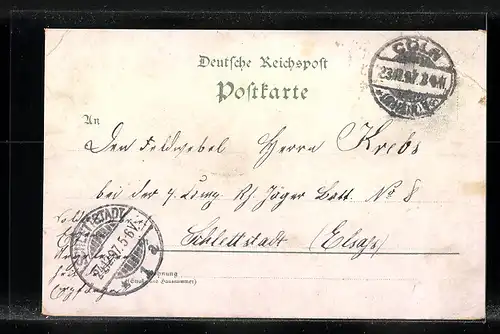 Deutsche Reichspost
Postkarte
CÖLN
23.12.97. 3-4 N
An
Den Feldwebel Herrn Krebs
bei der 4. Comp. Rh. Jäger Batt. No 8
Schlettstadt (Elsaß)
STADT
24.12.97. 5-6 V.
Wohnung
(Straße und Hausnummer)